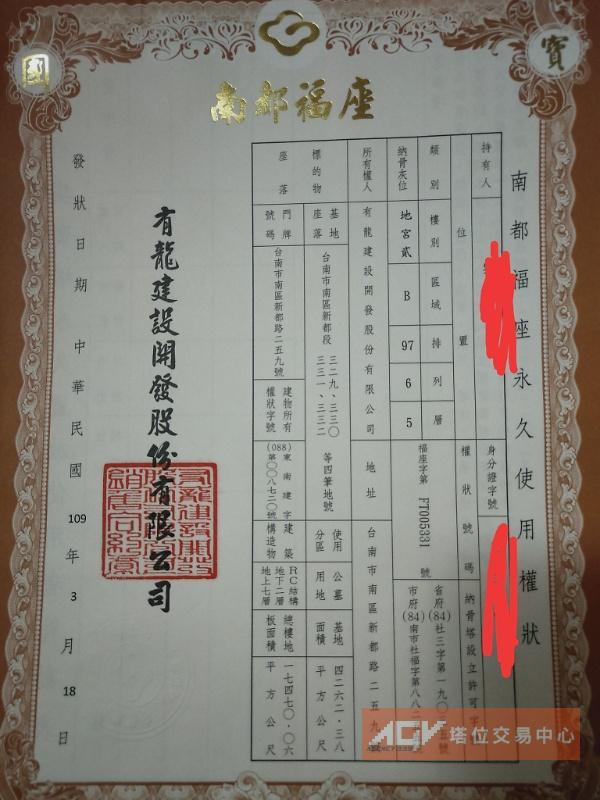 國
寶
南都福座
南都福座永久使用權狀
持有人
身分證字號
位置
權狀號碼
納骨塔設立許可字
類別
樓別
區域
排
列
層
福座字第 FT005331 號
省府(84)社三字第一九〇
五號
市府(84)南市社福字第八八二
納骨灰位
地宮貳
B
97
6
5
所有權人
有龍建設開發股份有限公司
地址
台南市南區新都路二五九
標的物
座落
基地座落
台南市南區新都段
三二九、三三〇
三三一、三三二
等四筆地號
使用分區
公墓用地
基地面積
四二六二.三八
平方公尺
門牌號碼
台南市南區新都路二五九號
建物所有權狀字號
(088)東南建字
第〇〇八七三〇號
建築構造物
RC結構
地下二層
地上七層
總樓地板面積
一七四七〇.〇六
平方公尺
有龍建設開發股份有限公司
發狀日期 中華民國 109 年 3 月 18 日
AGV 塔位交易中心